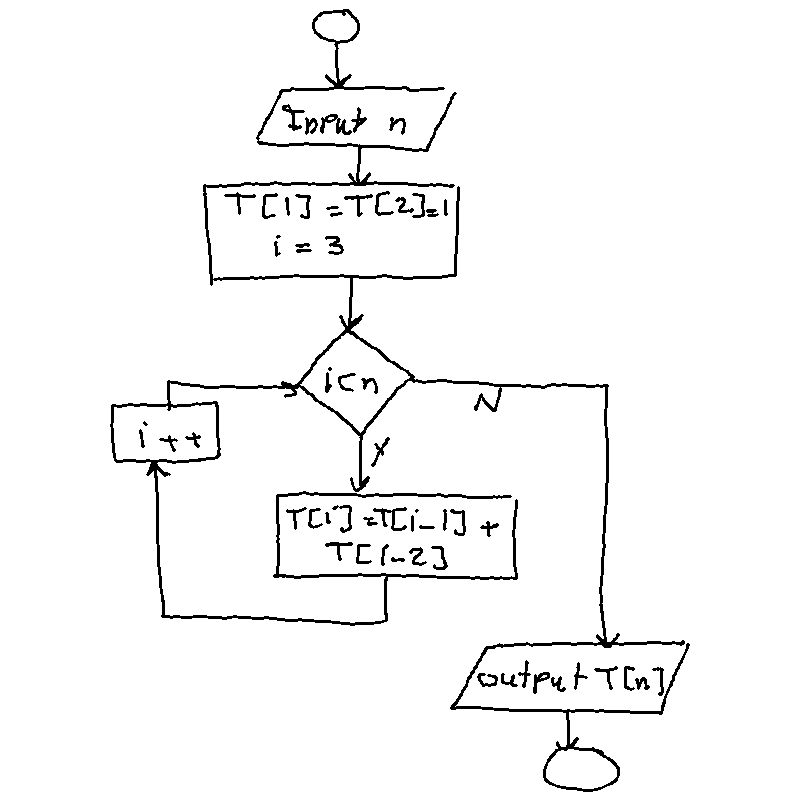 Input n
T[1] = T[2]=1
i = 3
i<n
N
Y
i ++
T[i] = T[i-1] +
T[i-2]
output T[n]